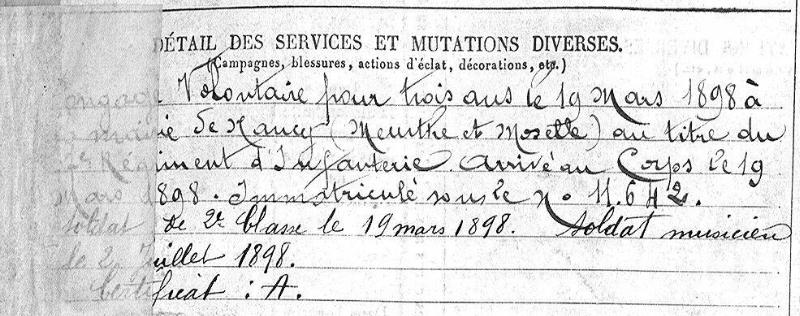 DÉTAIL DES SERVICES ET MUTATIONS DIVERSES.
(Campagnes, blessures, actions d'éclat, décorations, etc.)
Engagé Volontaire pour trois ans le 19 Mars 1898 à
la mairie de Nancy (Meurthe et Moselle) au titre du
Régiment d'Infanterie. Arrivé au Corps le 19
Mars 1898. Immatriculé sous le No 11.642.
Soldat de 2e Classe le 19 mars 1898. Soldat musicien
Juillet 1898.
Certificat : A.